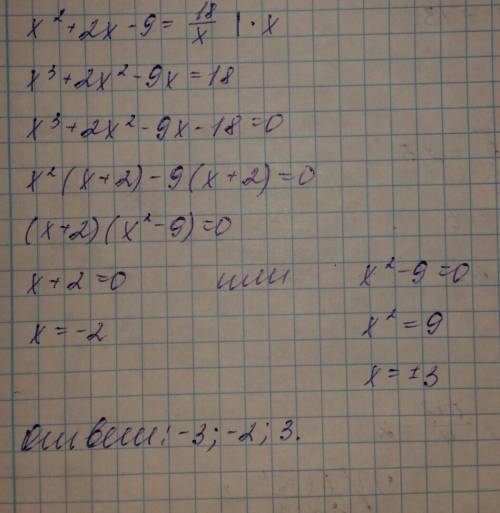 x² + 2x - 9 = 18/x | · x
x³ + 2x² - 9x = 18
x³ + 2x² - 9x - 18 = 0
x² (x + 2) - 9 (x + 2) = 0
(x + 2) (x² - 9) = 0
x + 2 = 0 или x² - 9 = 0
x = -2 x² = 9
x = ±3
ответ: -3; -2; 3.